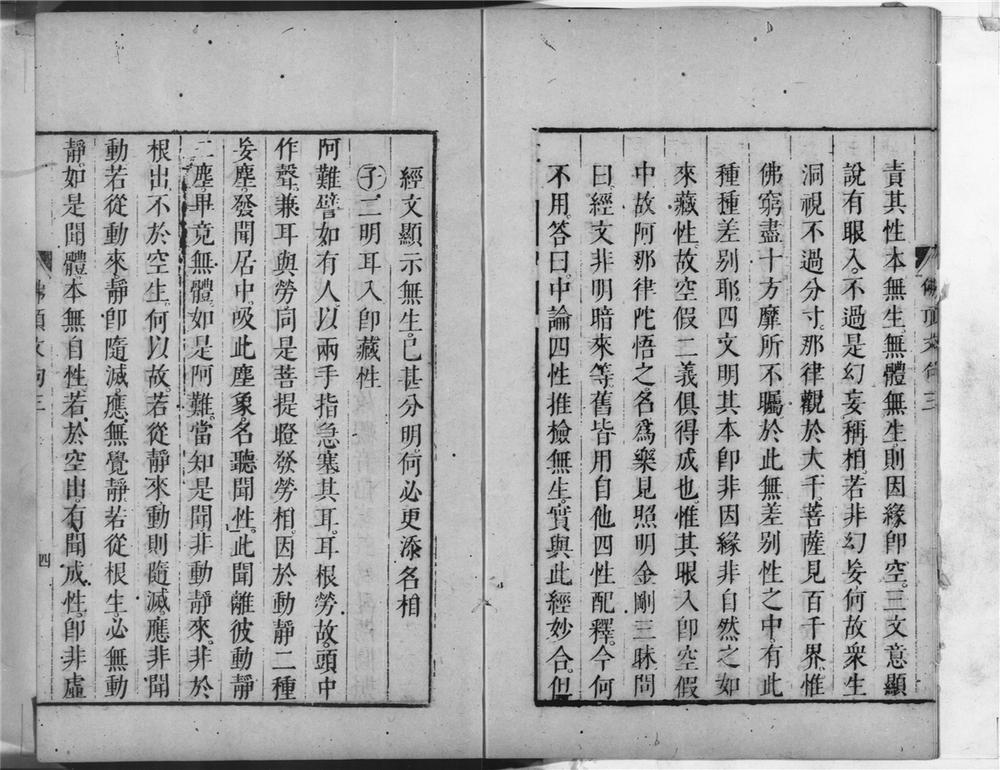 責其性本無生。無體無生。則因緣卽空。三文意顯
說有眼入。不過是幻妄稱相。若非幻妄何故衆生
洞視不過分寸。那律觀於大千。菩薩見百千界。惟
佛窮盡十方靡所不矚。於此無差別性之中。有此
種種差別耶。四文明其本卽非因緣非自然之如
來藏性。故空假二義俱得成也。惟其眼入卽空假
中。故阿那律陀悟之。名爲樂見照明金剛三昧。問
曰。經文非明暗來等。舊皆用自他四性配釋。今何
不用。答曰。中論四性推檢無生。實與此經妙合。但
佛頂文句三
經文顯示無生。已甚分明。何必更添名相
㊂二明耳入卽藏性
阿難。譬如有人。以兩手指急塞其耳。耳根勞故。頭中
作聲。兼耳與勞同是菩提瞪發勞相。因於動靜二種
妄塵。發聞居中。吸此塵象。名聽聞性。此聞離彼動靜
二塵。畢竟無體。如是阿難。當知是聞非動靜來。非於
根出。不於空生。何以故。若從靜來。動則隨滅。應非聞
動。若從動來。靜卽隨滅。應無覺靜。若從根生。必無動
靜。如是聞體。本無自性。若於空出。有聞成性。卽非虛
佛頂文句三
四